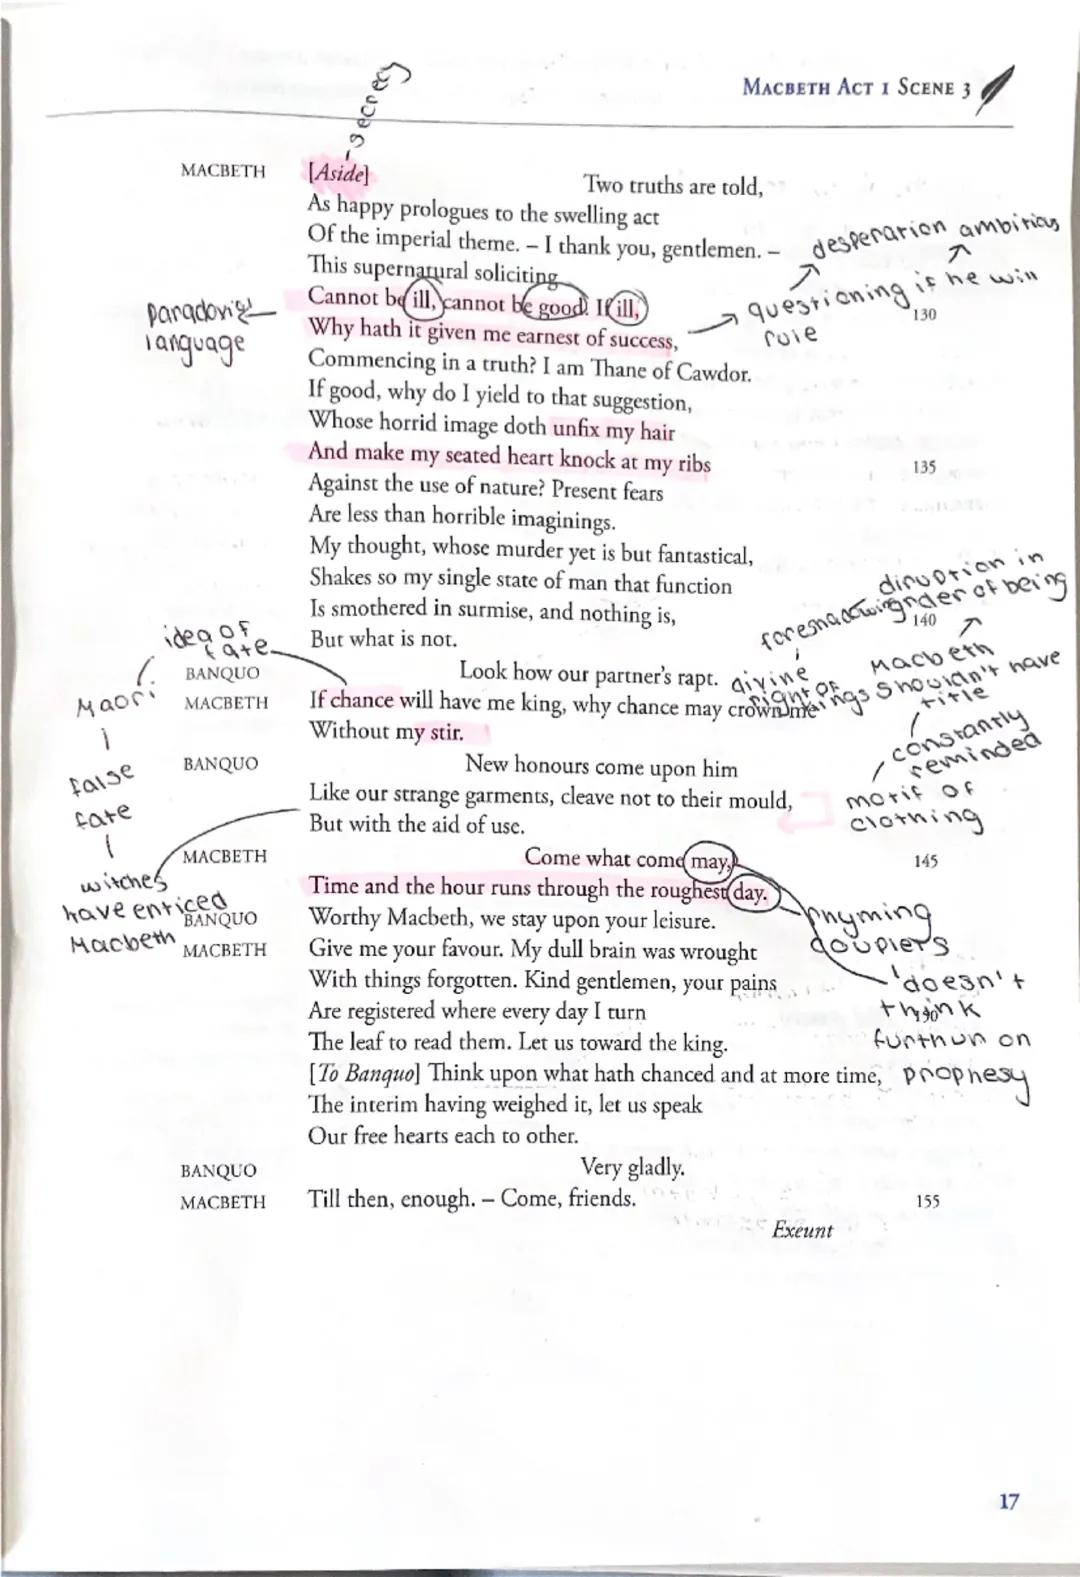 MACBETH ACT 1 SCENE 3
secrecy
MACBETH [Aside] Two truths are told,
As happy prologues to the swelling act
Of the imperial theme. – I thank you, gentlemen. –
desperation ambitious
This supernatural soliciting
Cannot be ill, cannot be good. If ill,
questioning if he will
rule
130
paradoxical
language
Why hath it given me earnest of success,
Commencing in a truth? I am Thane of Cawdor.
If good, why do I yield to that suggestion,
Whose horrid image doth unfix my hair
And make my seated heart knock at my ribs 135
Against the use of nature? Present fears
Are less than horrible imaginings.
My thought, whose murder yet is but fantastical,
Shakes so my single state of man that function
Is smothered in surmise, and nothing is, 140
But what is not.
foreshadowing
diruption in
order of being
idea of
fate
BANQUO Look how our partner's rapt.
MACBETH If chance will have me king, why chance may crown me
Without my stir.
divine
right of
kings
Macbeth
shouldn't have
title
constantly
reminded
motif of
clothing
Maori
false
fate
witches
have enticed
Macbeth
BANQUO New honours come upon him
Like our strange garments, cleave not to their mould,
But with the aid of use.
MACBETH Come what come may, 145
Time and the hour runs through the roughest day.
rhyming
couplets
doesn't
think
furthur on
prophesy
BANQUO Worthy Macbeth, we stay upon your leisure.
MACBETH Give me your favour. My dull brain was wrought
With things forgotten. Kind gentlemen, your pains
Are registered where every day I turn
The leaf to read them. Let us toward the king.
[To Banquo] Think upon what hath chanced and at more time,
The interim having weighed it, let us speak
Our free hearts each to other.
BANQUO Very gladly.
MACBETH Till then, enough. – Come, friends. 155
Exeunt
17